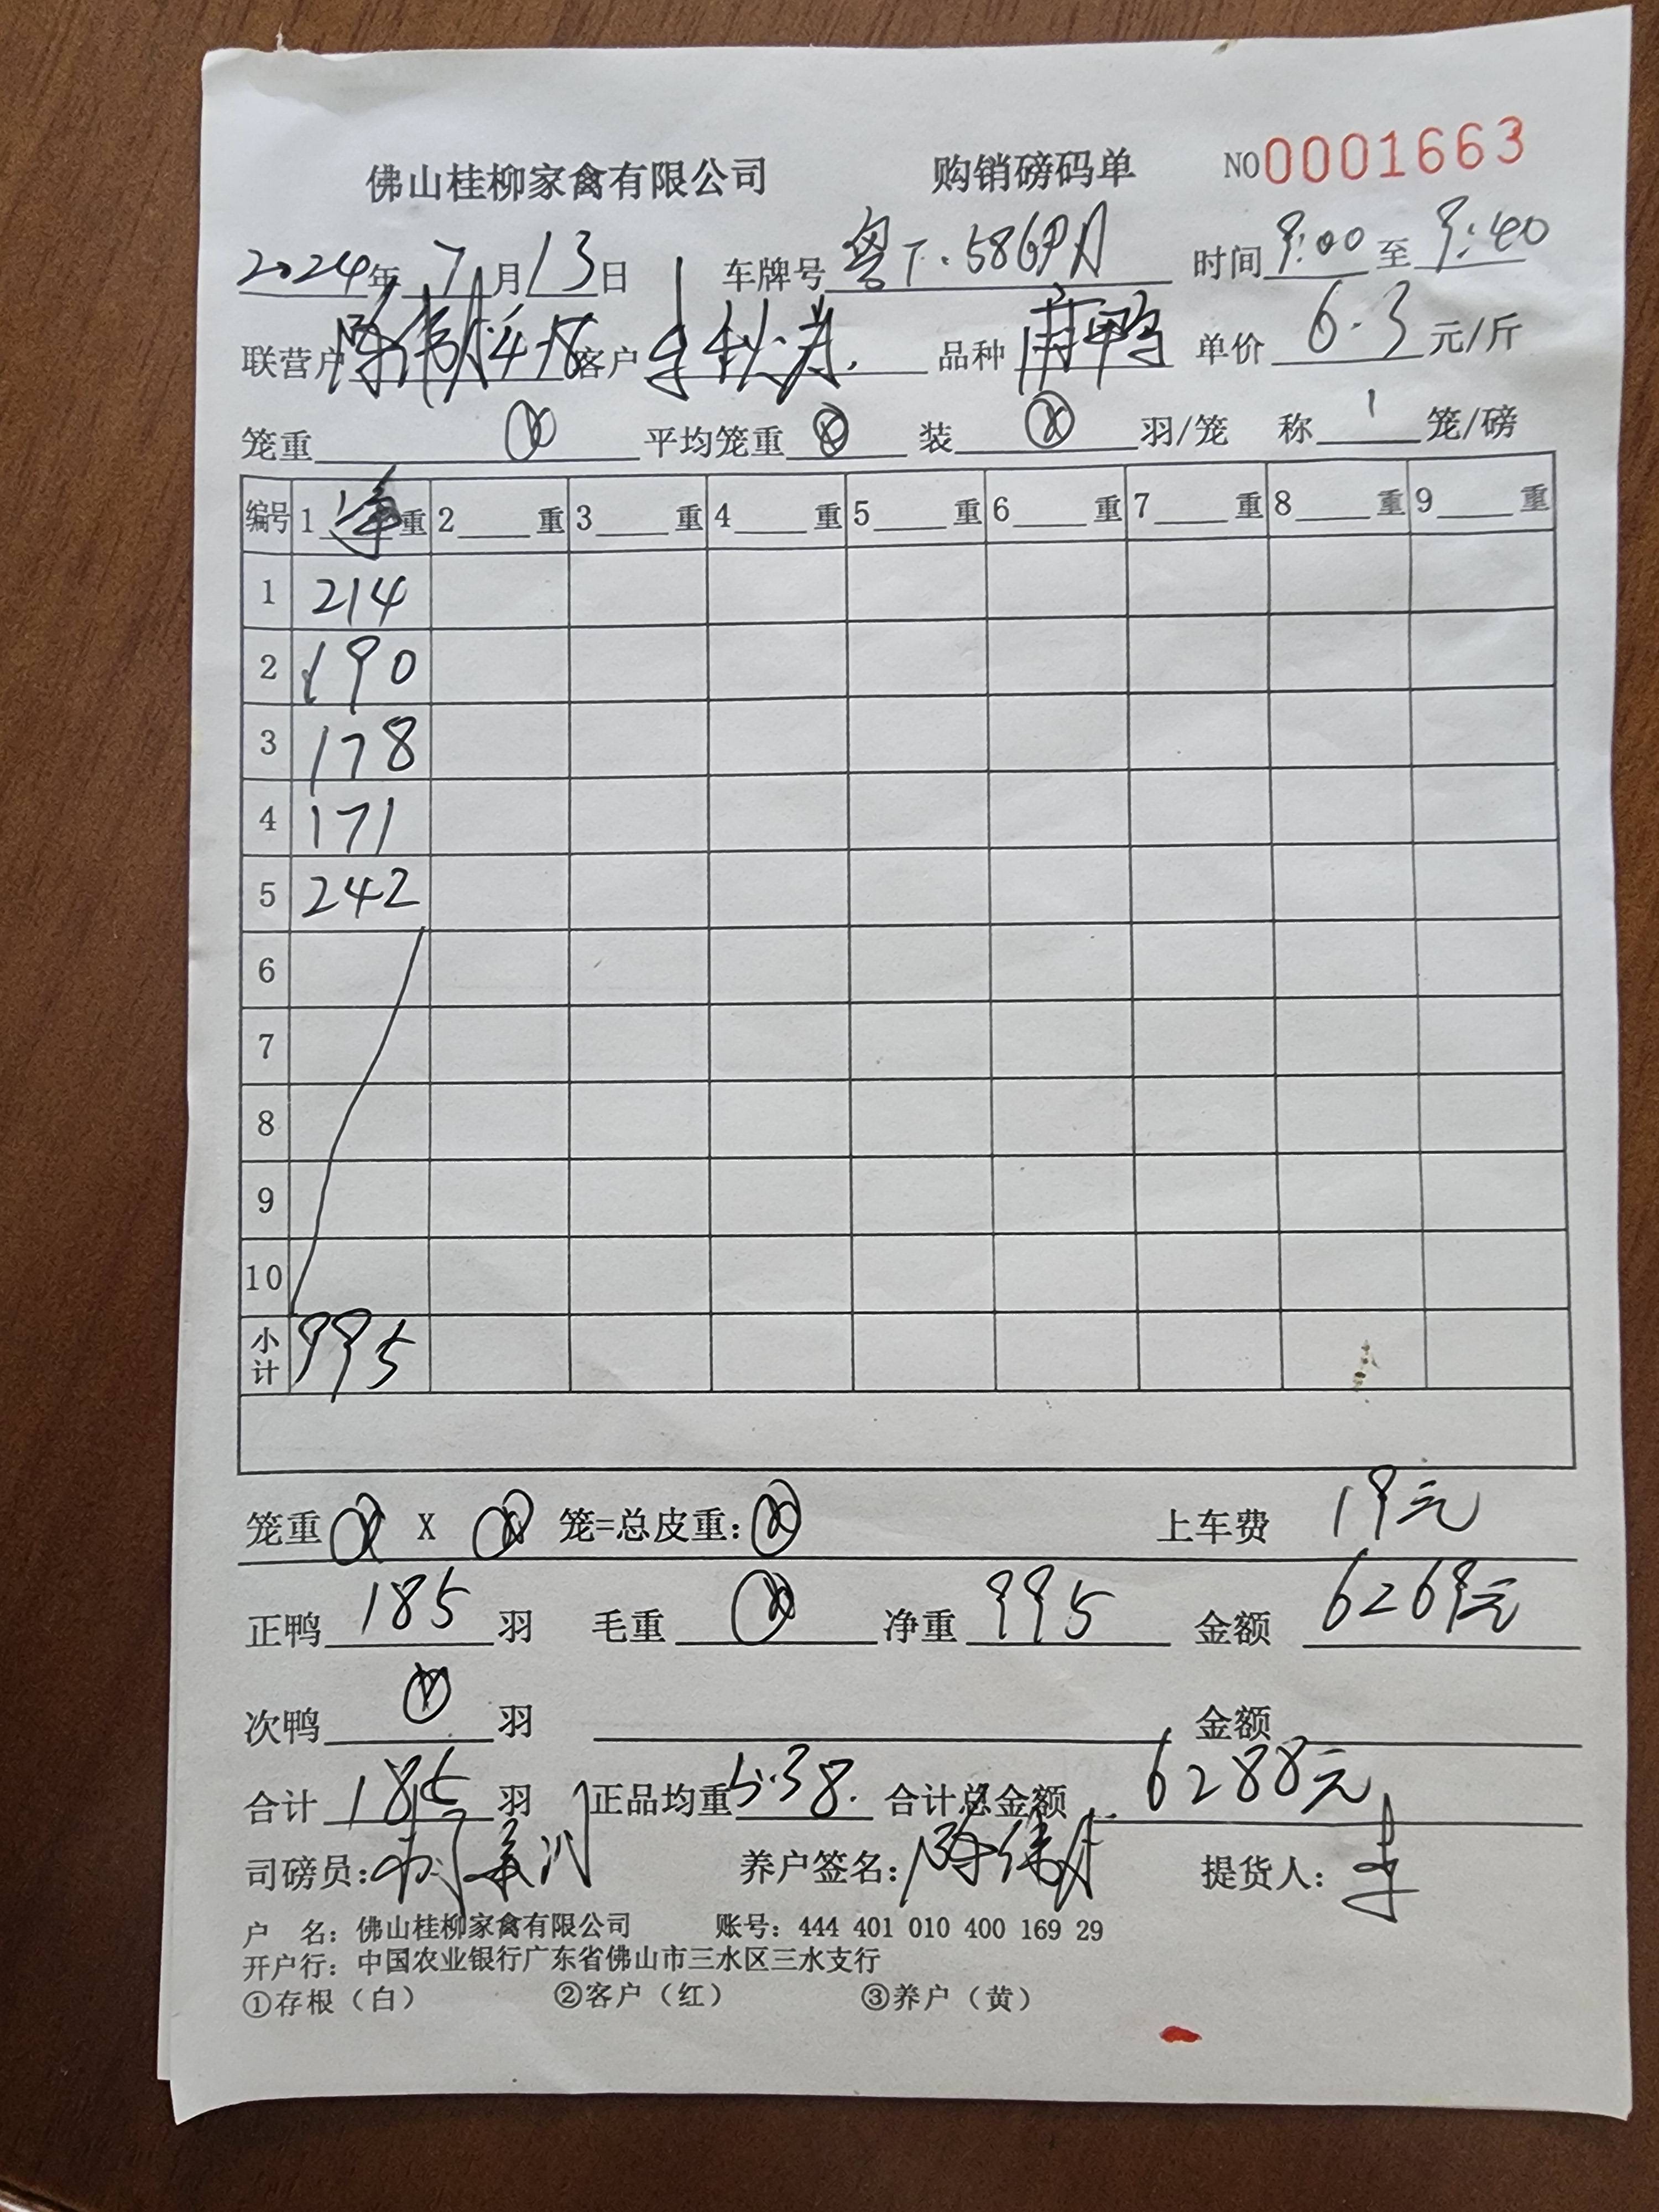 佛山桂柳家禽有限公司 购销磅码单 NO0001663
2024年7月13日 车牌号 粤T·58 时间 9:00 至 9:40
联营户 陈 4-8 客户 李秋 品种 鸭 单价 6.3 元/斤
笼重 平均笼重 装 羽/笼 称 1 笼/磅
编号 1 净 重 2 重 3 重 4 重 5 重 6 重 7 重 8 重 9 重
1 214
2 190
3 178
4 171
5 242
6
7
8
9
10
小计 995
笼重 X 笼=总皮重: 上车费 19元
正鸭 185 羽 毛重 净重 995 金额 6269元
次鸭 羽 金额
合计 185 羽 正品均重 5.38. 合计总金额 6288元
司磅员: 养户签名: 陈伟 提货人: 李
户 名: 佛山桂柳家禽有限公司 账号: 444 401 010 400 169 29
开户行: 中国农业银行广东省佛山市三水区三水支行
①存根（白） ②客户（红） ③养户（黄）